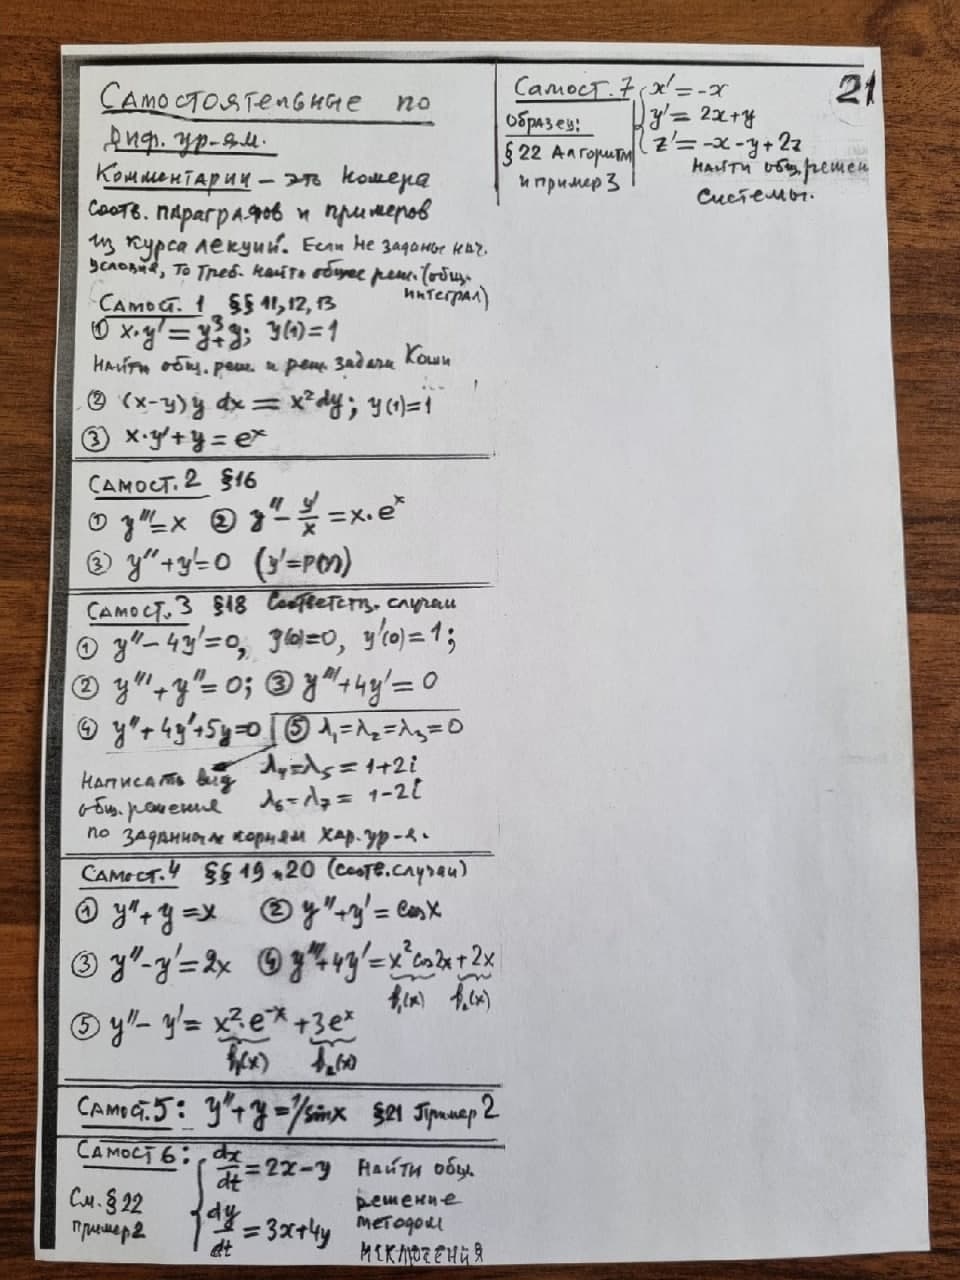 Самостоятельные по
диф. ур-ям.
Комментарии – это номера
соотв. параграфов и примеров
из курса лекций. Если не заданы нач.
условия, то треб. найти общее реш. (общ.
интеграл)
Самост. 1 §§ 11, 12, 13
① x·y' = y³+y; y(1)=1
Найти общ. реш. и реш. задачи Коши
② (x-y)y dx = x²dy; y(1)=1
③ x·y'+y = eˣ
Самост. 2 §16
① y'''=x ② y''- y'/x = x·eˣ
③ y''+y'=0 (y'=P(y))
Самост. 3 §18 Соответств. случаи
① y''-4y'=0, y(0)=0, y'(0)=1;
② y'''+y''=0; ③ y'''+4y'=0
④ y''+4y'+5y=0 ⑤ λ₁=λ₂=λ₃=0
λ₄=λ₅=1+2i
λ₆=λ₇=1-2i
Написать вид
общ. решения
по заданным корням хар. ур-я.
Самост. 4 §§ 19 и 20 (соотв. случаи)
① y''+y=x ② y''+y'=cosx
③ y''-y'=2x ④ y'''+4y'=x²cos2x+2x
f₁(x) f₂(x)
⑤ y''-y'= x²·e⁻ˣ+3eˣ
f₁(x) f₂(x)
Самост. 5: y''+y=1/sinx §21 Пример 2
Самост 6: dx/dt=2x-y Найти общ.
См. §22 решение
пример 2 dy/dt=3x+4y методом
исключения
21
Самост. 7 x'=-x
Образец: y'=2x+y
§22 Алгоритм z'=-x-y+2z
и пример 3 Найти общ. решен
системы.